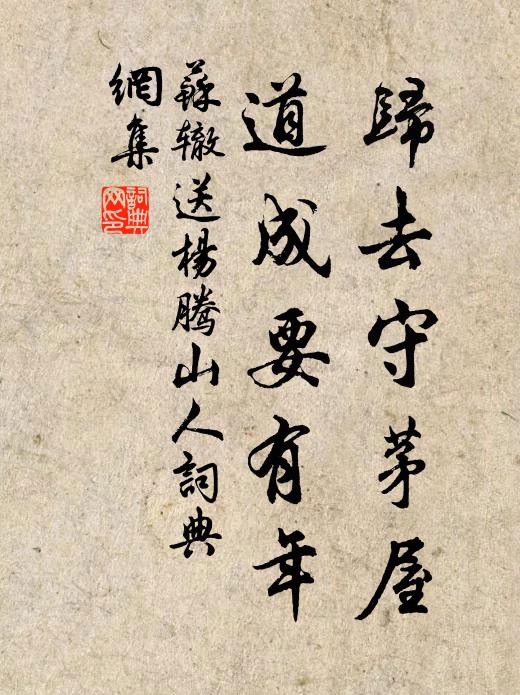 歸去守茅屋
道成要有年
蘇辙送楊騰山人詞典
網集
詞典
网印